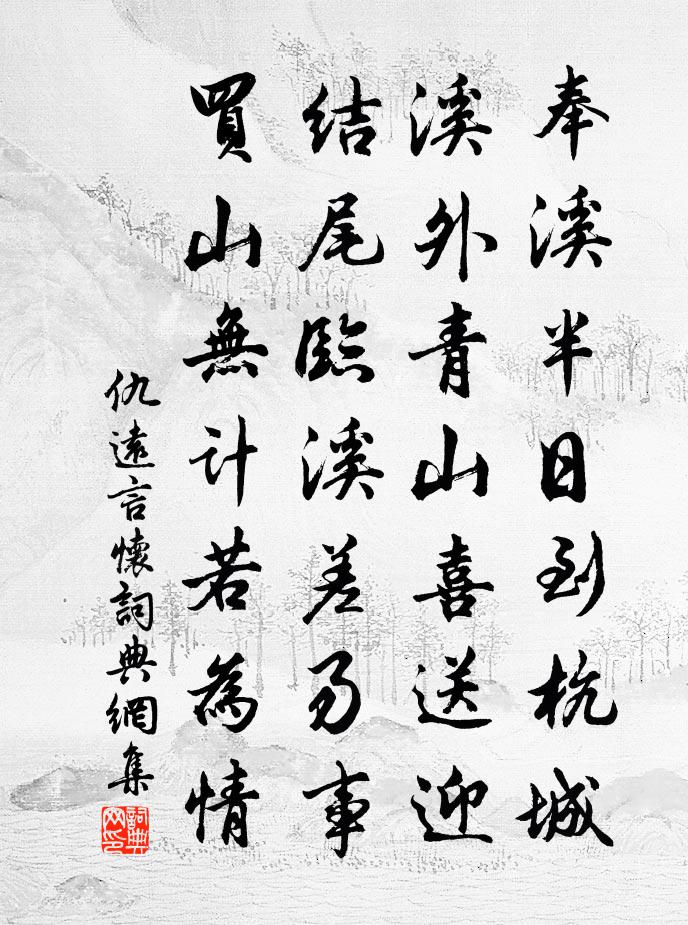 奉溪半日到杭城
溪外青山喜送迎
結尾臨溪差易事
買山無计若為情
仇遠言懷詞典網集
詞典网印